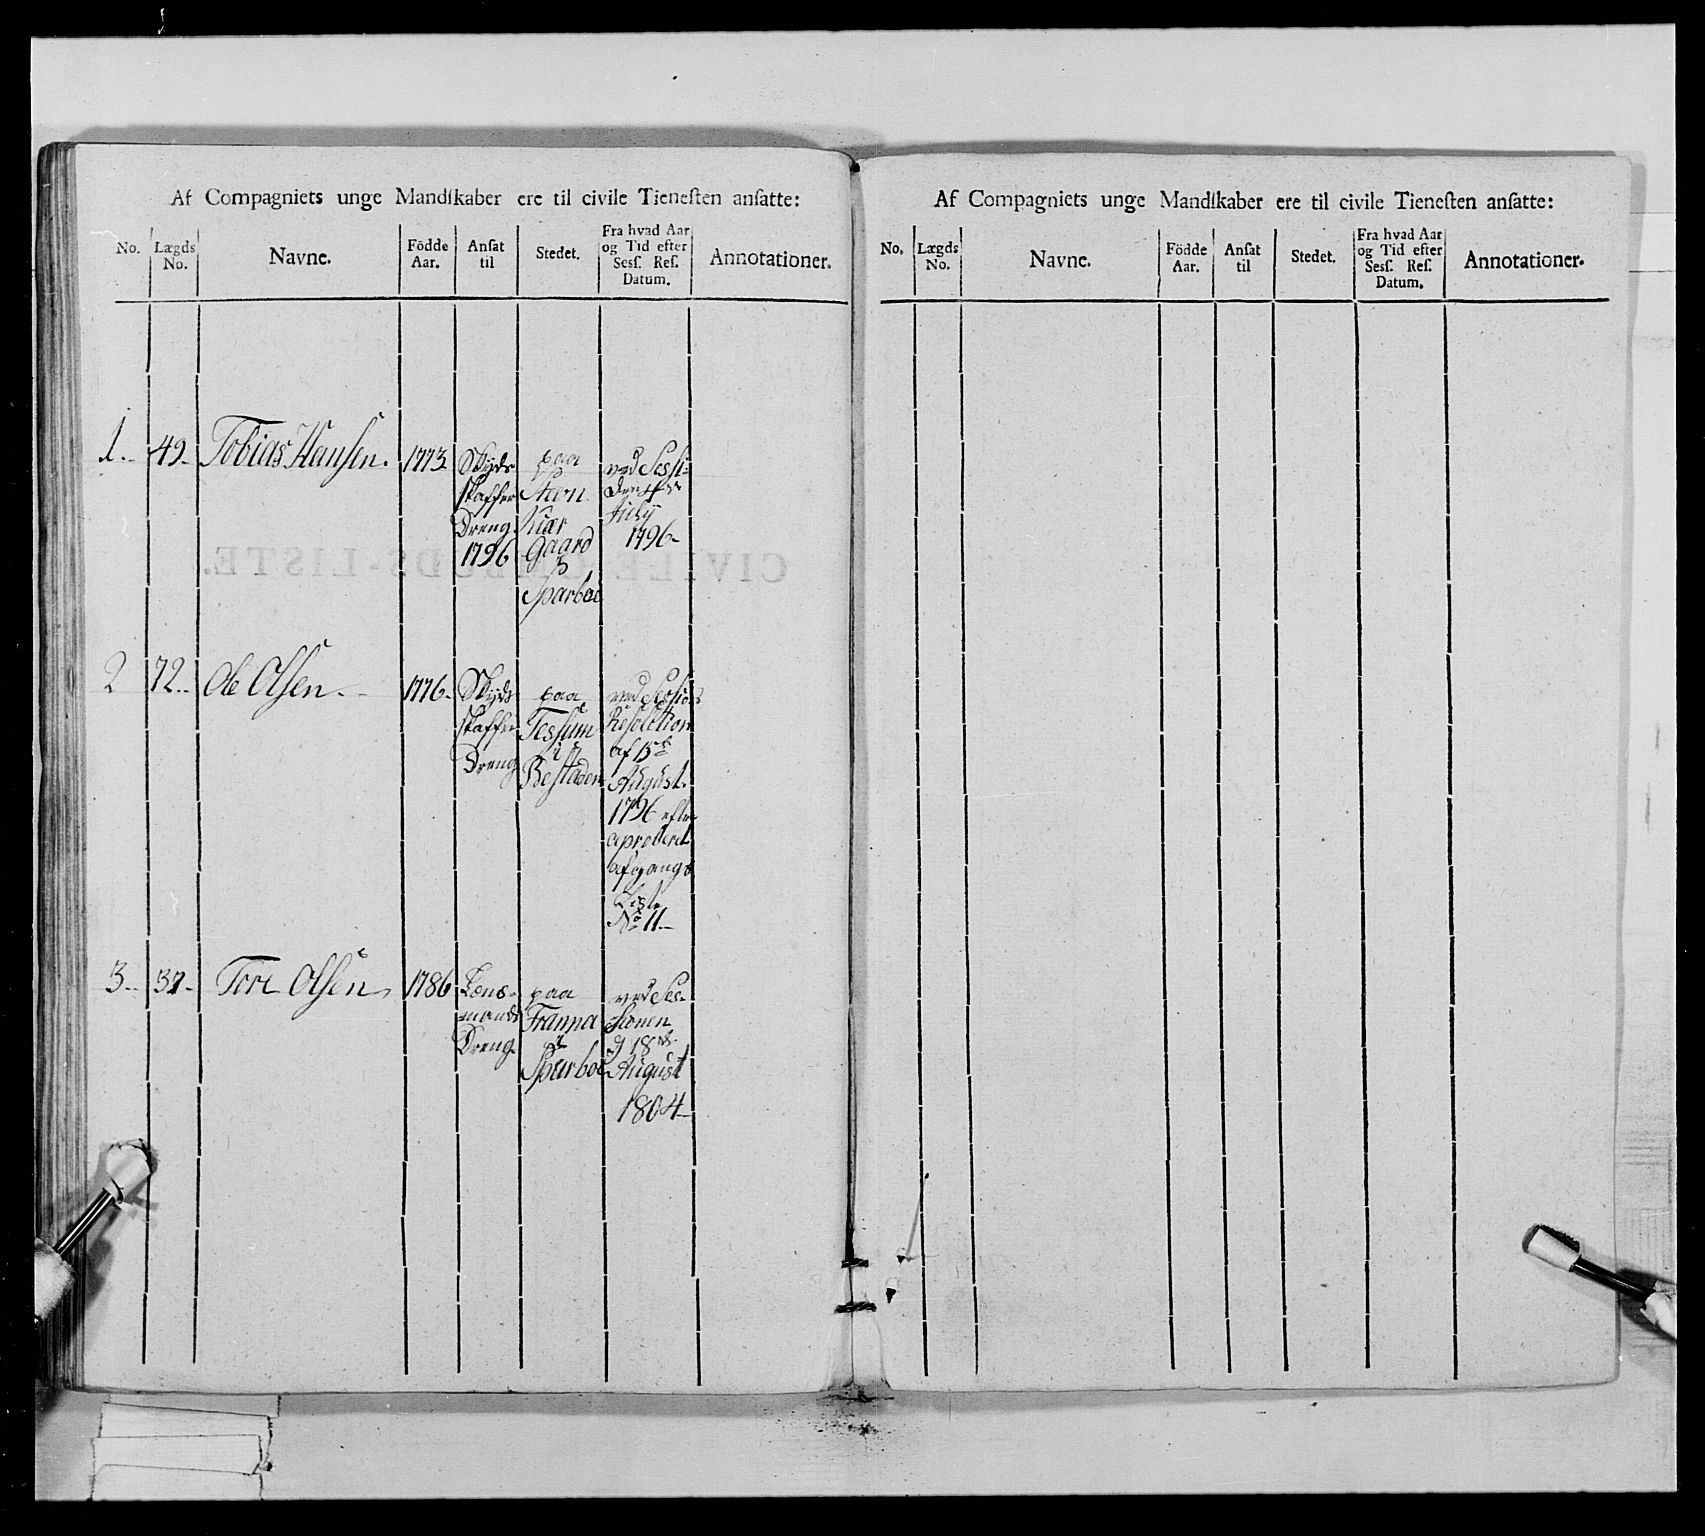 Af Compagniets unge Mandſkaber ere til civile Tieneſten anſatte:
No. Lægds No. Navne. Födde Aar. Anſat til Stedet. Fra hvad Aar og Tid efter Sesſ. Reſ. Datum. Annotationer.
1. 49. Tobias Hansen. 1773 Skyds skaffer Dreng 1796 paa Steen Kiær Gaard i Sparboe ved Sessi: den July 1796
2 72. Ole Olsen. 1776. Skyds skaffer Dreng paa i Bestaden ved Sessions Resolution af 13de August 1796 efter aproberet afgangs Liste No 11
3. 37. Tore Olsen 1786 Lens mands Dreng. paa i Sparboe ved Ses- sionen d 18de August 1804
Af Compagniets unge Mandſkaber ere til civile Tieneſten anſatte:
No. Lægds No. Navne. Födde Aar. Anſat til Stedet. Fra hvad Aar og Tid efter Sesſ. Reſ. Datum. Annotationer.